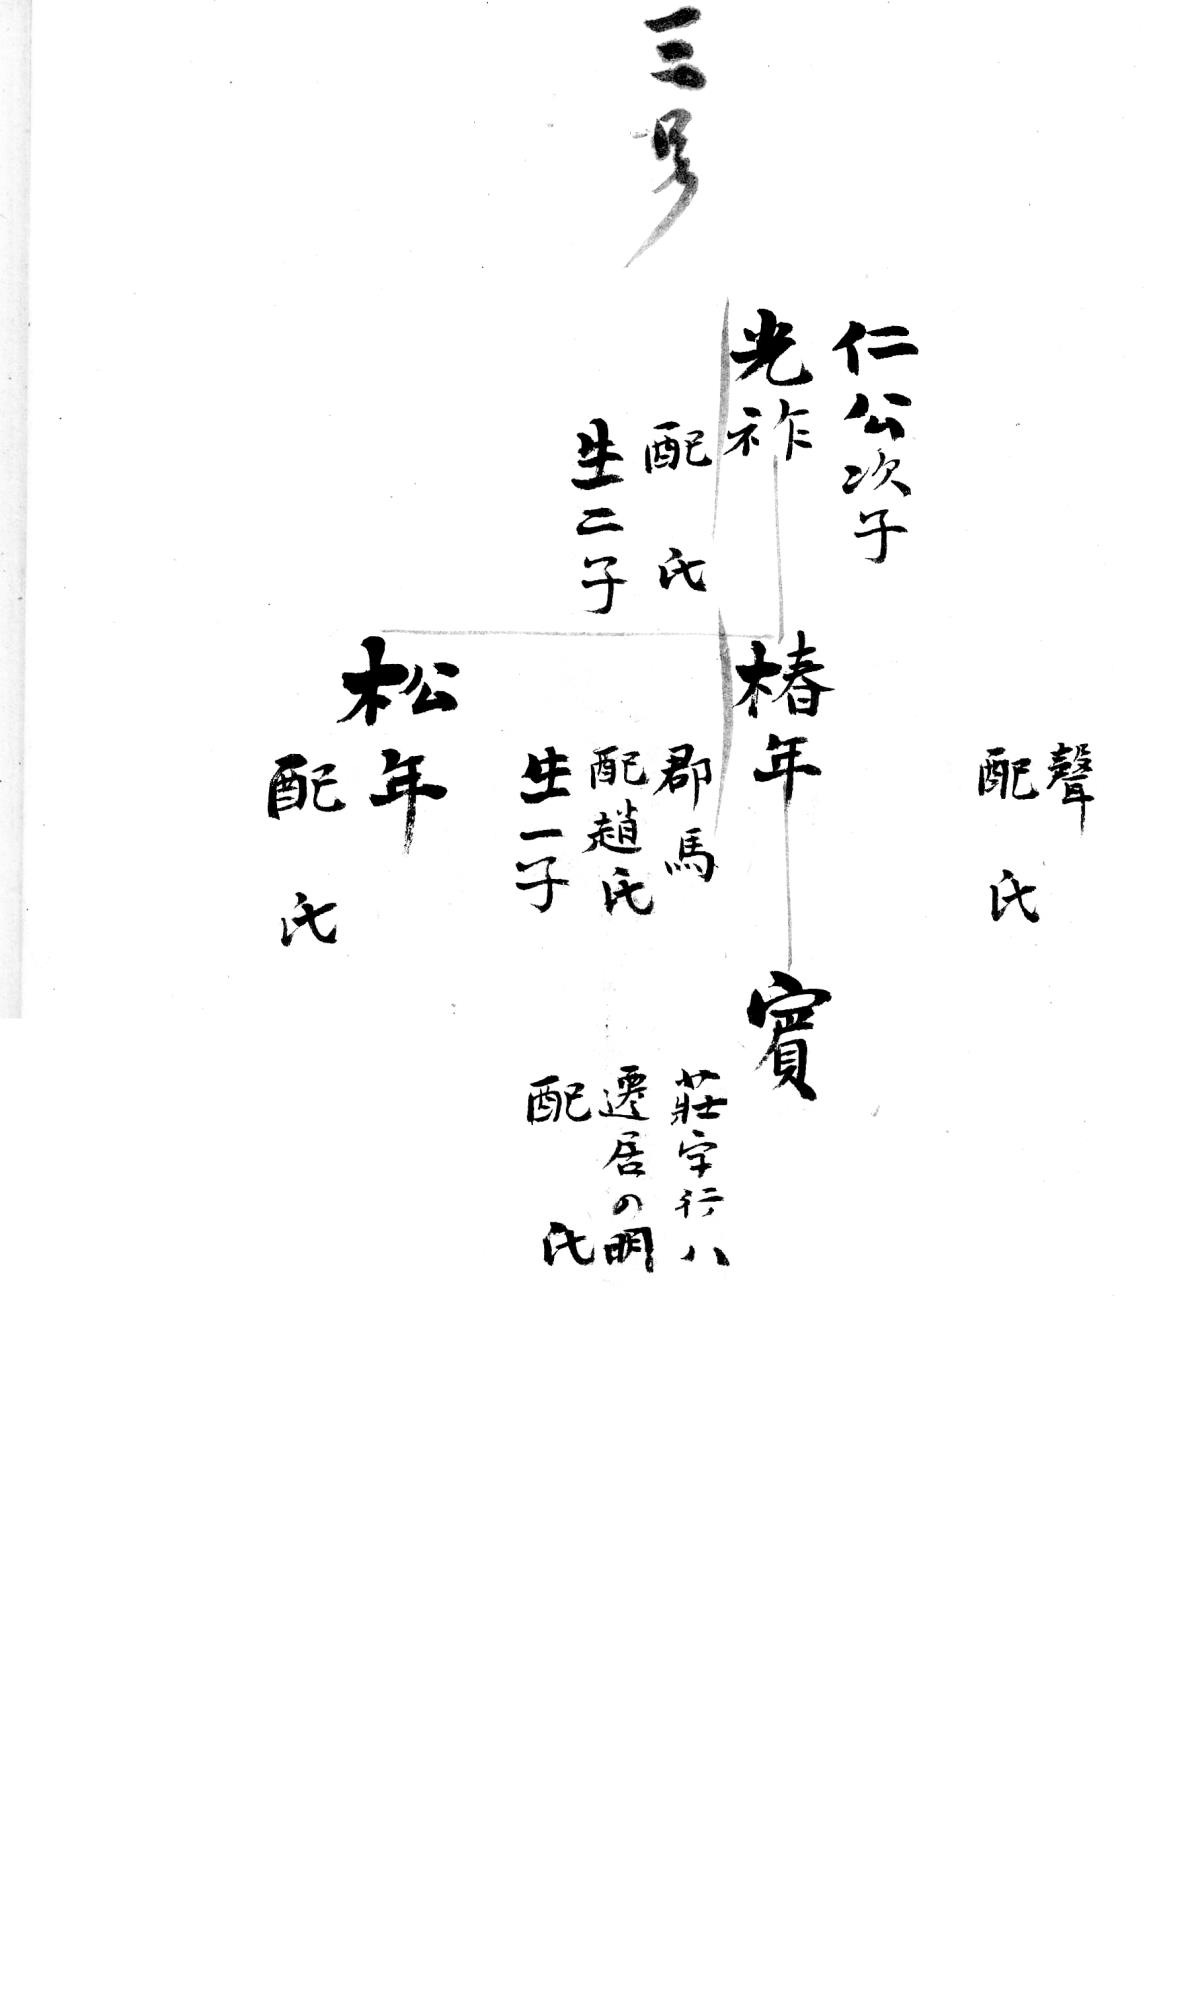 三号
仁公次子
光祚
配 氏
生二子
聲
配 氏
椿年
郡馬
配趙氏
生一子
松年
配 氏
賓
莊字行八
遷居の明
配 氏